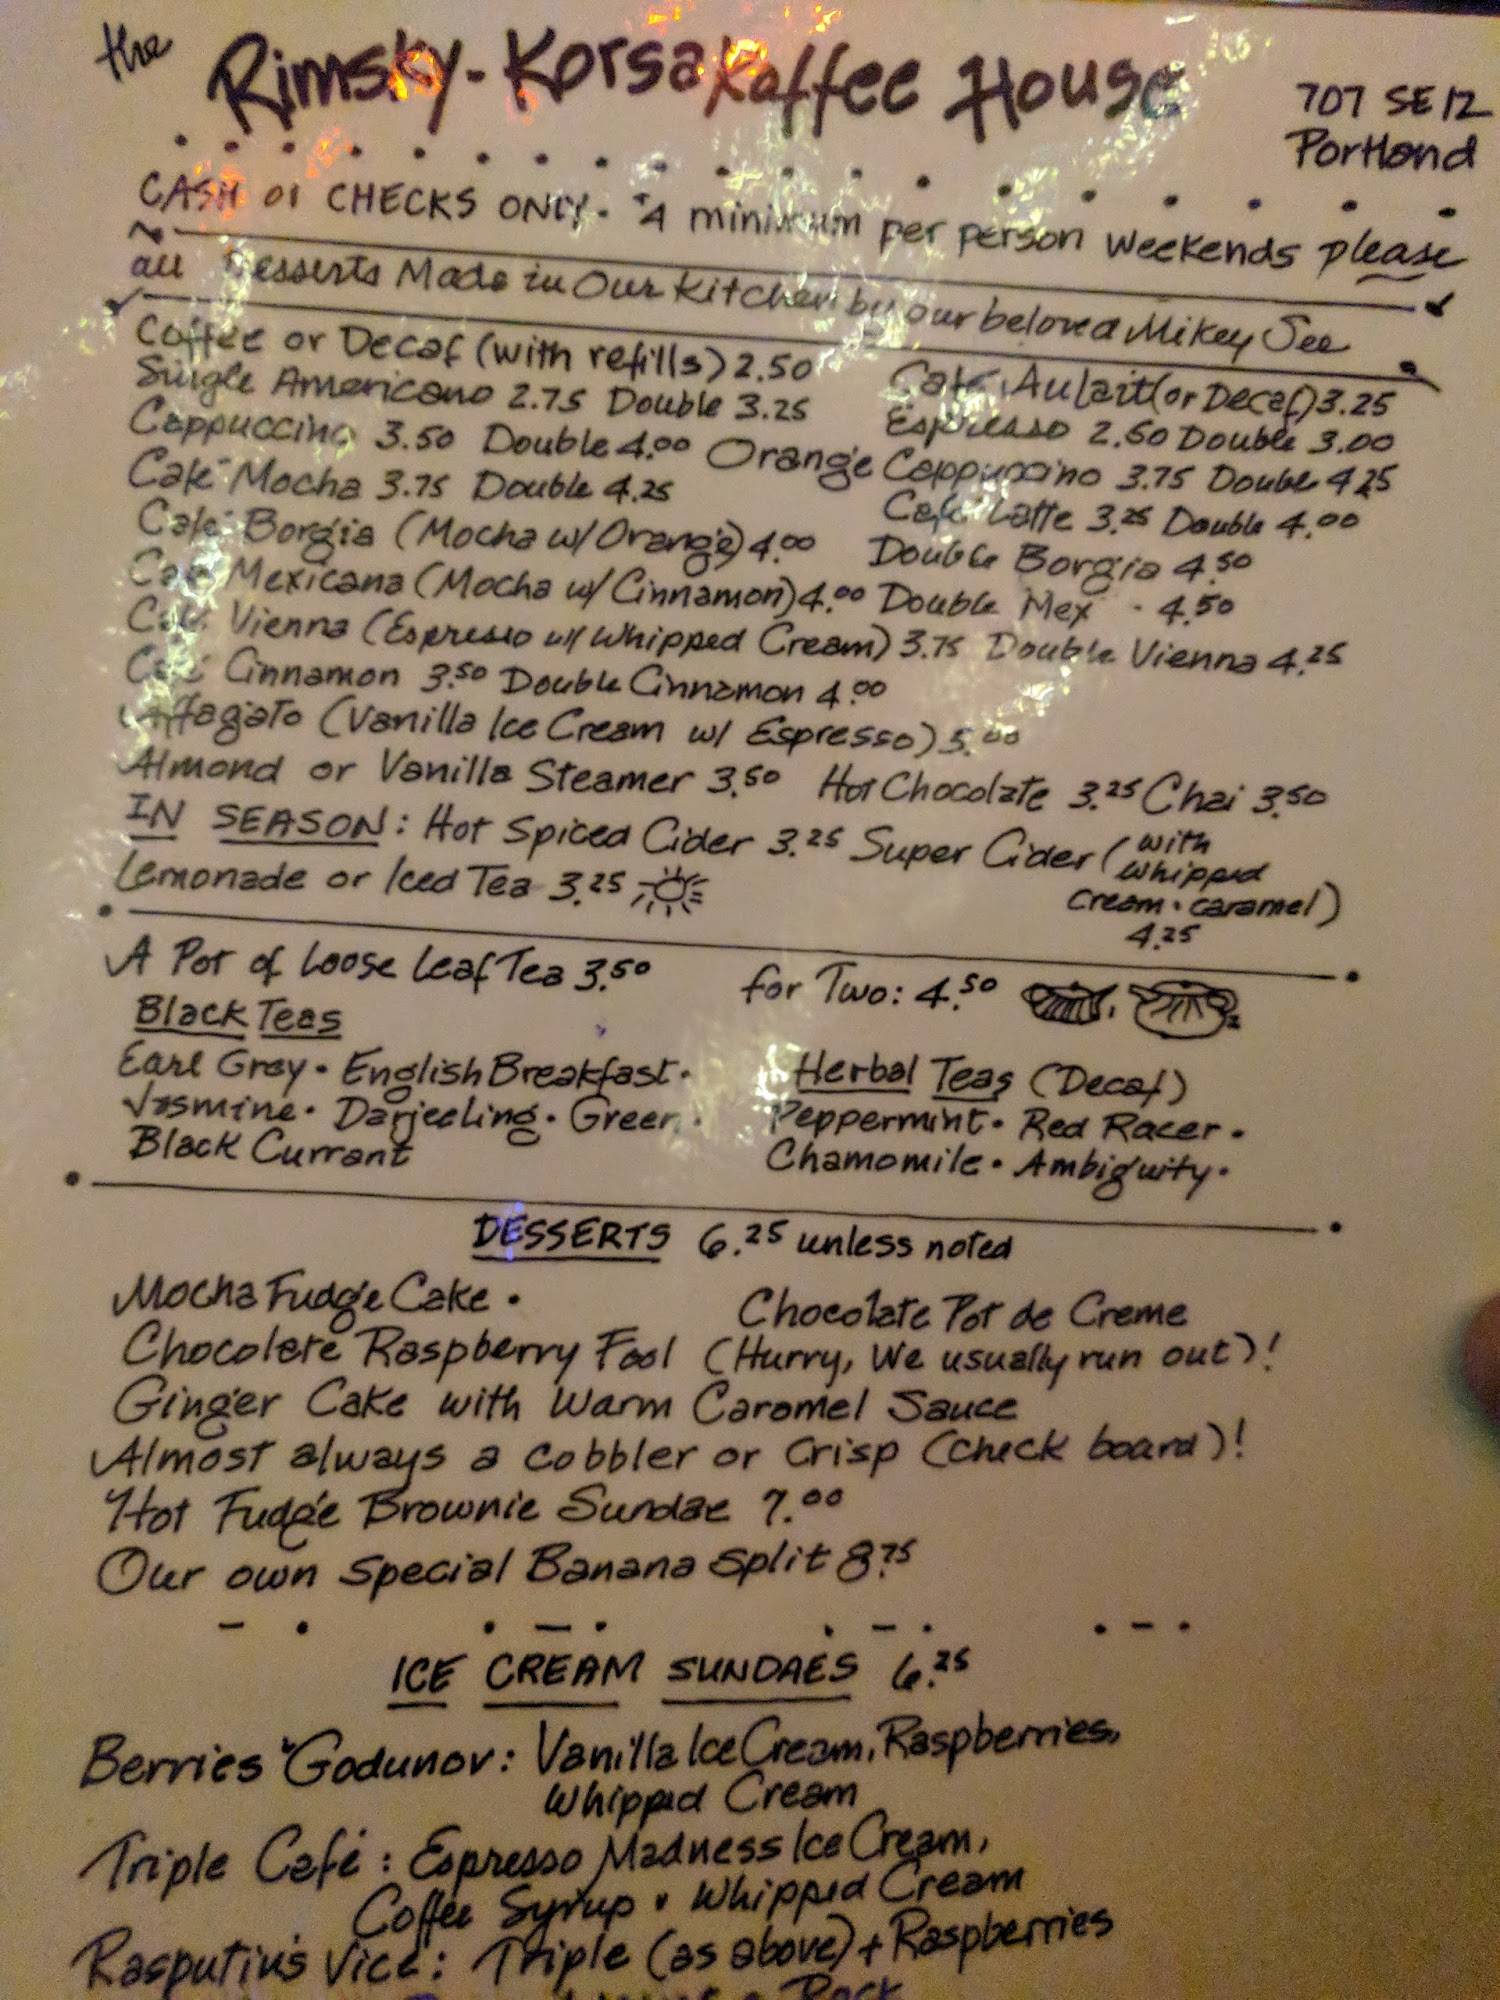 the Rimsky-Korsakoffee House
707 SE 12
Portland
CASH or CHECKS ONLY. $4 minimum per person weekends please
all Desserts Made in Our Kitchen by our beloved Mikey See
Coffee or Decaf (with refills) 2.50 Café Au Lait (or Decaf) 3.25
Single Americano 2.75 Double 3.25 Espresso 2.50 Double 3.00
Cappuccino 3.50 Double 4.00 Orange Cappuccino 3.75 Double 4.25
Café Mocha 3.75 Double 4.25 Café Latte 3.25 Double 4.00
Café Borgia (Mocha w/ Orange) 4.00 Double Borgia 4.50
Café Mexicana (Mocha w/ Cinnamon) 4.00 Double Mex - 4.50
Café Vienna (Espresso w/ Whipped Cream) 3.75 Double Vienna 4.25
Café Cinnamon 3.50 Double Cinnamon 4.00
Affagato (Vanilla Ice Cream w/ Espresso) 5.00
Almond or Vanilla Steamer 3.50 Hot Chocolate 3.25 Chai 3.50
IN SEASON: Hot Spiced Cider 3.25 Super Cider (with
whipped
cream • caramel)
4.25
Lemonade or Iced Tea 3.25
A Pot of Loose Leaf Tea 3.50 for Two: 4.50
Black Teas
Earl Grey • English Breakfast •
Jasmine • Darjeeling • Green •
Black Currant
Herbal Teas (Decaf)
Peppermint • Red Racer •
Chamomile • Ambiguity •
DESSERTS 6.25 unless noted
Mocha Fudge Cake • Chocolate Pot de Creme
Chocolate Raspberry Fool (Hurry, We usually run out)!
Ginger Cake with Warm Caramel Sauce
Almost always a cobbler or crisp (check board)!
Hot Fudge Brownie Sundae 7.00
Our own special Banana Split 8.75
ICE CREAM SUNDAES 6.25
Berries Godunov: Vanilla Ice Cream, Raspberries,
Whipped Cream
Triple Café: Espresso Madness Ice Cream,
Coffee Syrup • Whipped Cream
Rasputin's Vice: Triple (as above) + Raspberries